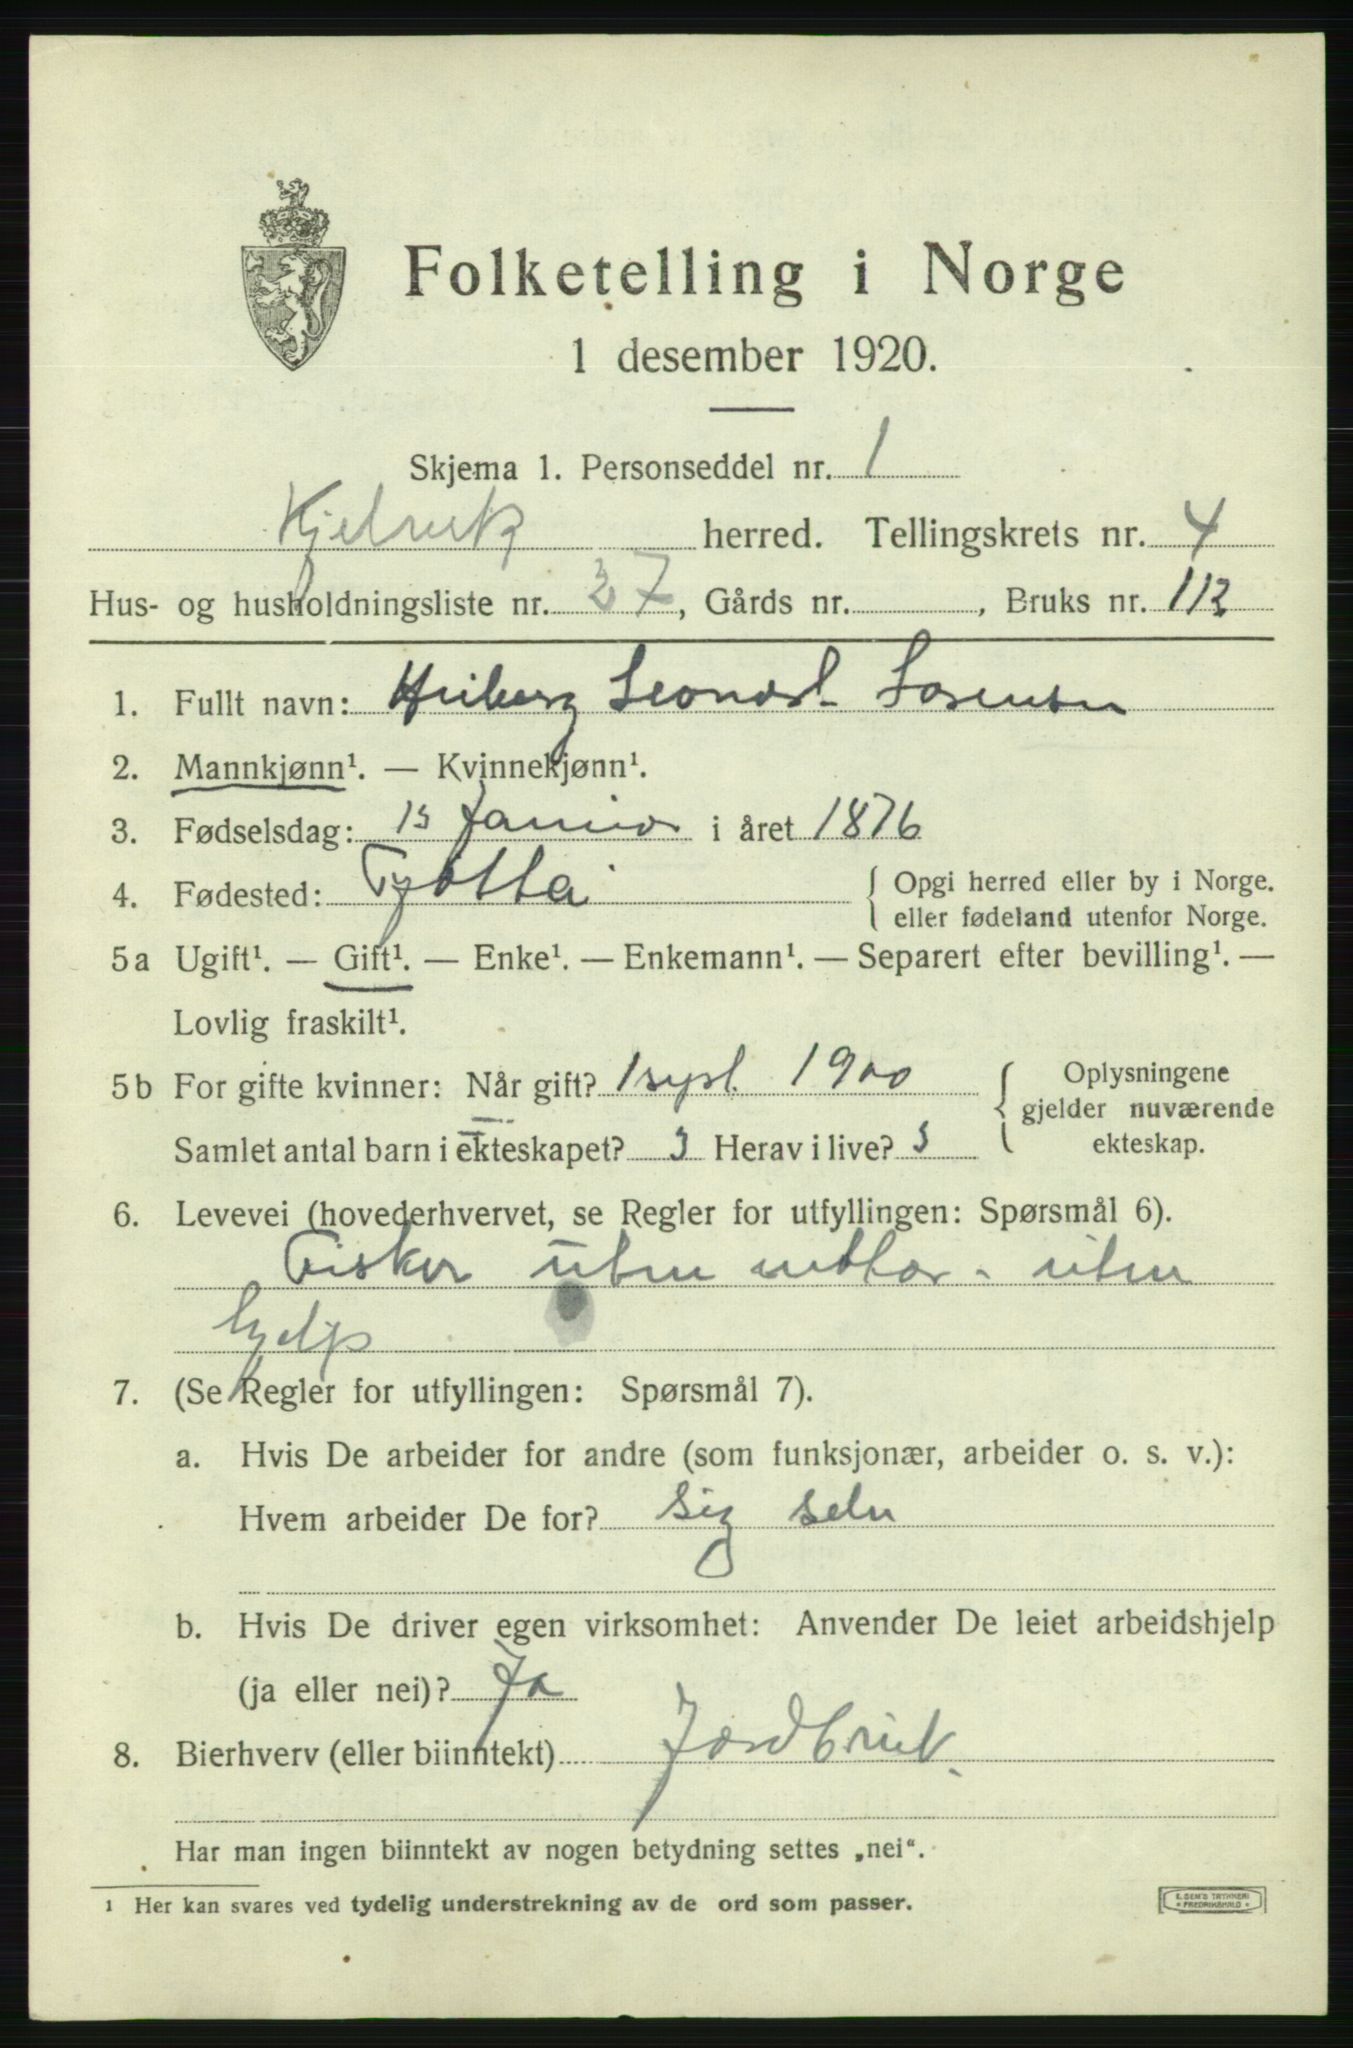 Folketelling i Norge
1 desember 1920.
Skjema 1. Personseddel nr. 1
Kjelvik herred. Tellingskrets nr. 4
Hus- og husholdningsliste nr. 37, Gårds nr. , Bruks nr. 113
1. Fullt navn: Heiberg Leonart Sørensen
2. Mannkjønn¹. — Kvinnekjønn¹.
3. Fødselsdag: 15 Januar i året 1876
4. Fødested: Tjøtta { Opgi herred eller by i Norge.
eller fødeland utenfor Norge.
5a Ugift¹. — Gift¹. — Enke¹. — Enkemann¹. — Separert efter bevilling¹. —
Lovlig fraskilt¹.
5b For gifte kvinner: Når gift? 1 sept. 1900 { Oplysningene
gjelder nuværende
Samlet antal barn i ekteskapet? 3 Herav i live? 3 ekteskap.
6. Levevei (hovederhvervet, se Regler for utfyllingen: Spørsmål 6).
Fisker uten motor - uten
7. (Se Regler for utfyllingen: Spørsmål 7).
a. Hvis De arbeider for andre (som funksjonær, arbeider o. s. v.):
Hvem arbeider De for? Sig selv
b. Hvis De driver egen virksomhet: Anvender De leiet arbeidshjelp
(ja eller nei)? Ja
8. Bierhverv (eller biinntekt) Jordbruk.
Har man ingen biinntekt av nogen betydning settes „nei“.
1 Her kan svares ved tydelig understrekning av de ord som passer.
E. SEM'S TRYKKERI
* FREDRIKSHALD *